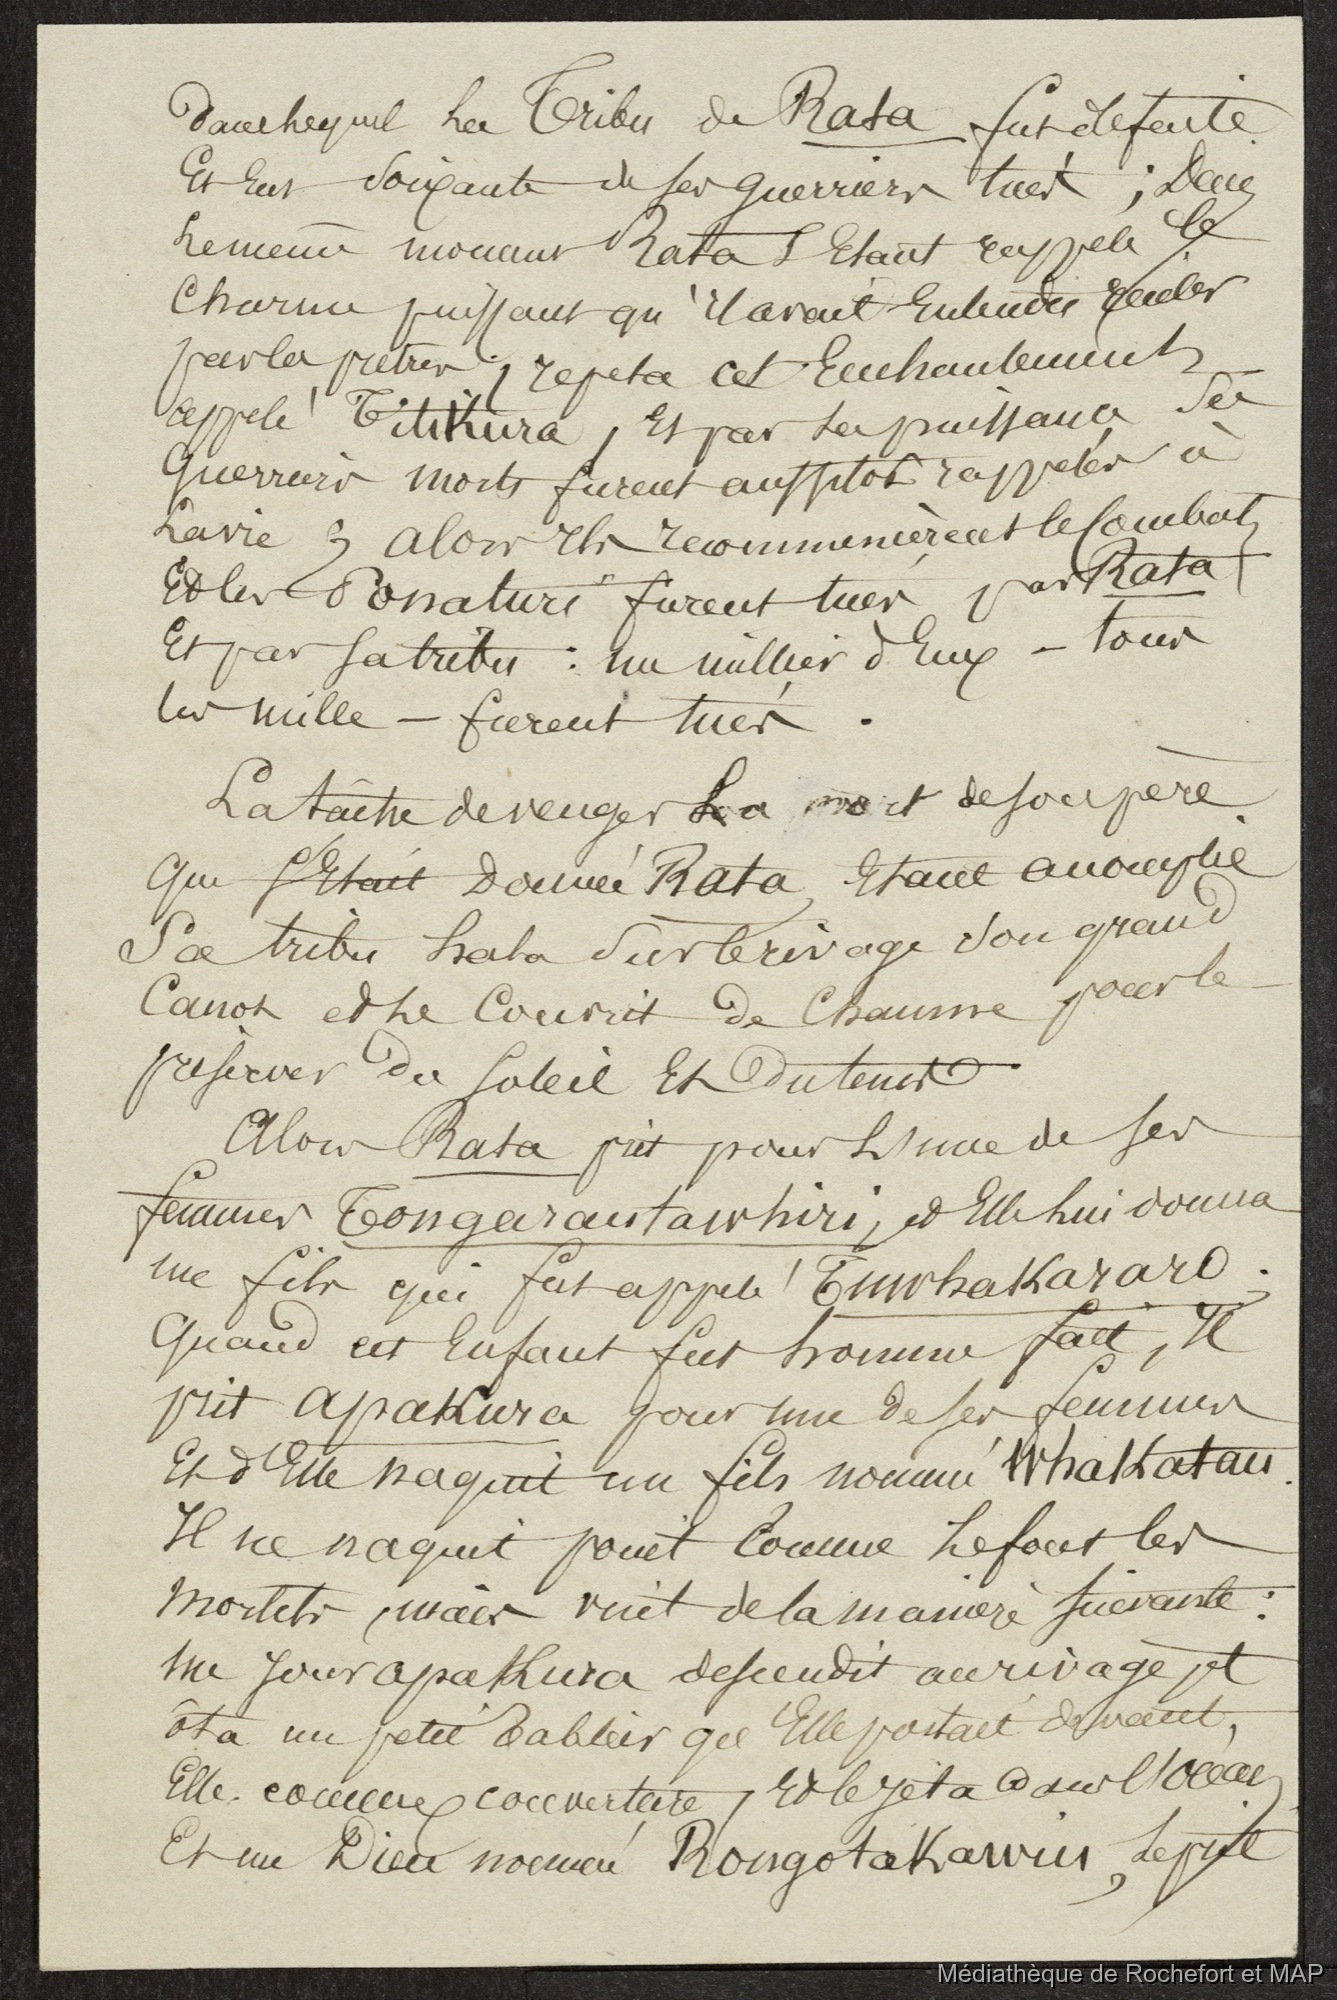 dans lequel la Tribu de Rata fut défaite
Et eut soixante de ses guerriers tués ; Dans
le même moment Rata s'Etant rappelé le
Charme puissant qu'il avait Entendu
par les prêtres ; répéta cet Enchantement
appelé Titikura, Et par sa puissance ses
guerriers morts furent aussitôt rappelés à
la vie ; alors ils recommencèrent le Combat,
Et les Ponaturi furent tués par Rata
Et par sa tribu : un millier d'Eux – tous
les mille – furent tués .
La tâche de venger la mort de son père
que s'Etait donnée Rata, Etant accomplie
Sa tribu hala sur le rivage son grand
Canot et le Couvrit de Chaume pour le
préserver du soleil Et du tems.
Alors Rata prit pour l'une de ses
femmes Tongarautawhiri, et Elle lui donna
un fils qui fut appelé Tuwhakararo.
Quand cet Enfant fut homme fait, Il
prit apakura pour une de ses femmes
Et d'Elle naquit un fils nommé Whakatau.
Il ne naquit point Comme le font les
mortels, mais vint de la manière suivante :
un jour apakura descendit au rivage, et
ôta un petit tablier qu'Elle portait devant,
Elle comme couverture, Et le jeta dans l'océan,
Et un Dieu nommé Rongotakawiu, le prit
Médiathèque de Rochefort et MAP